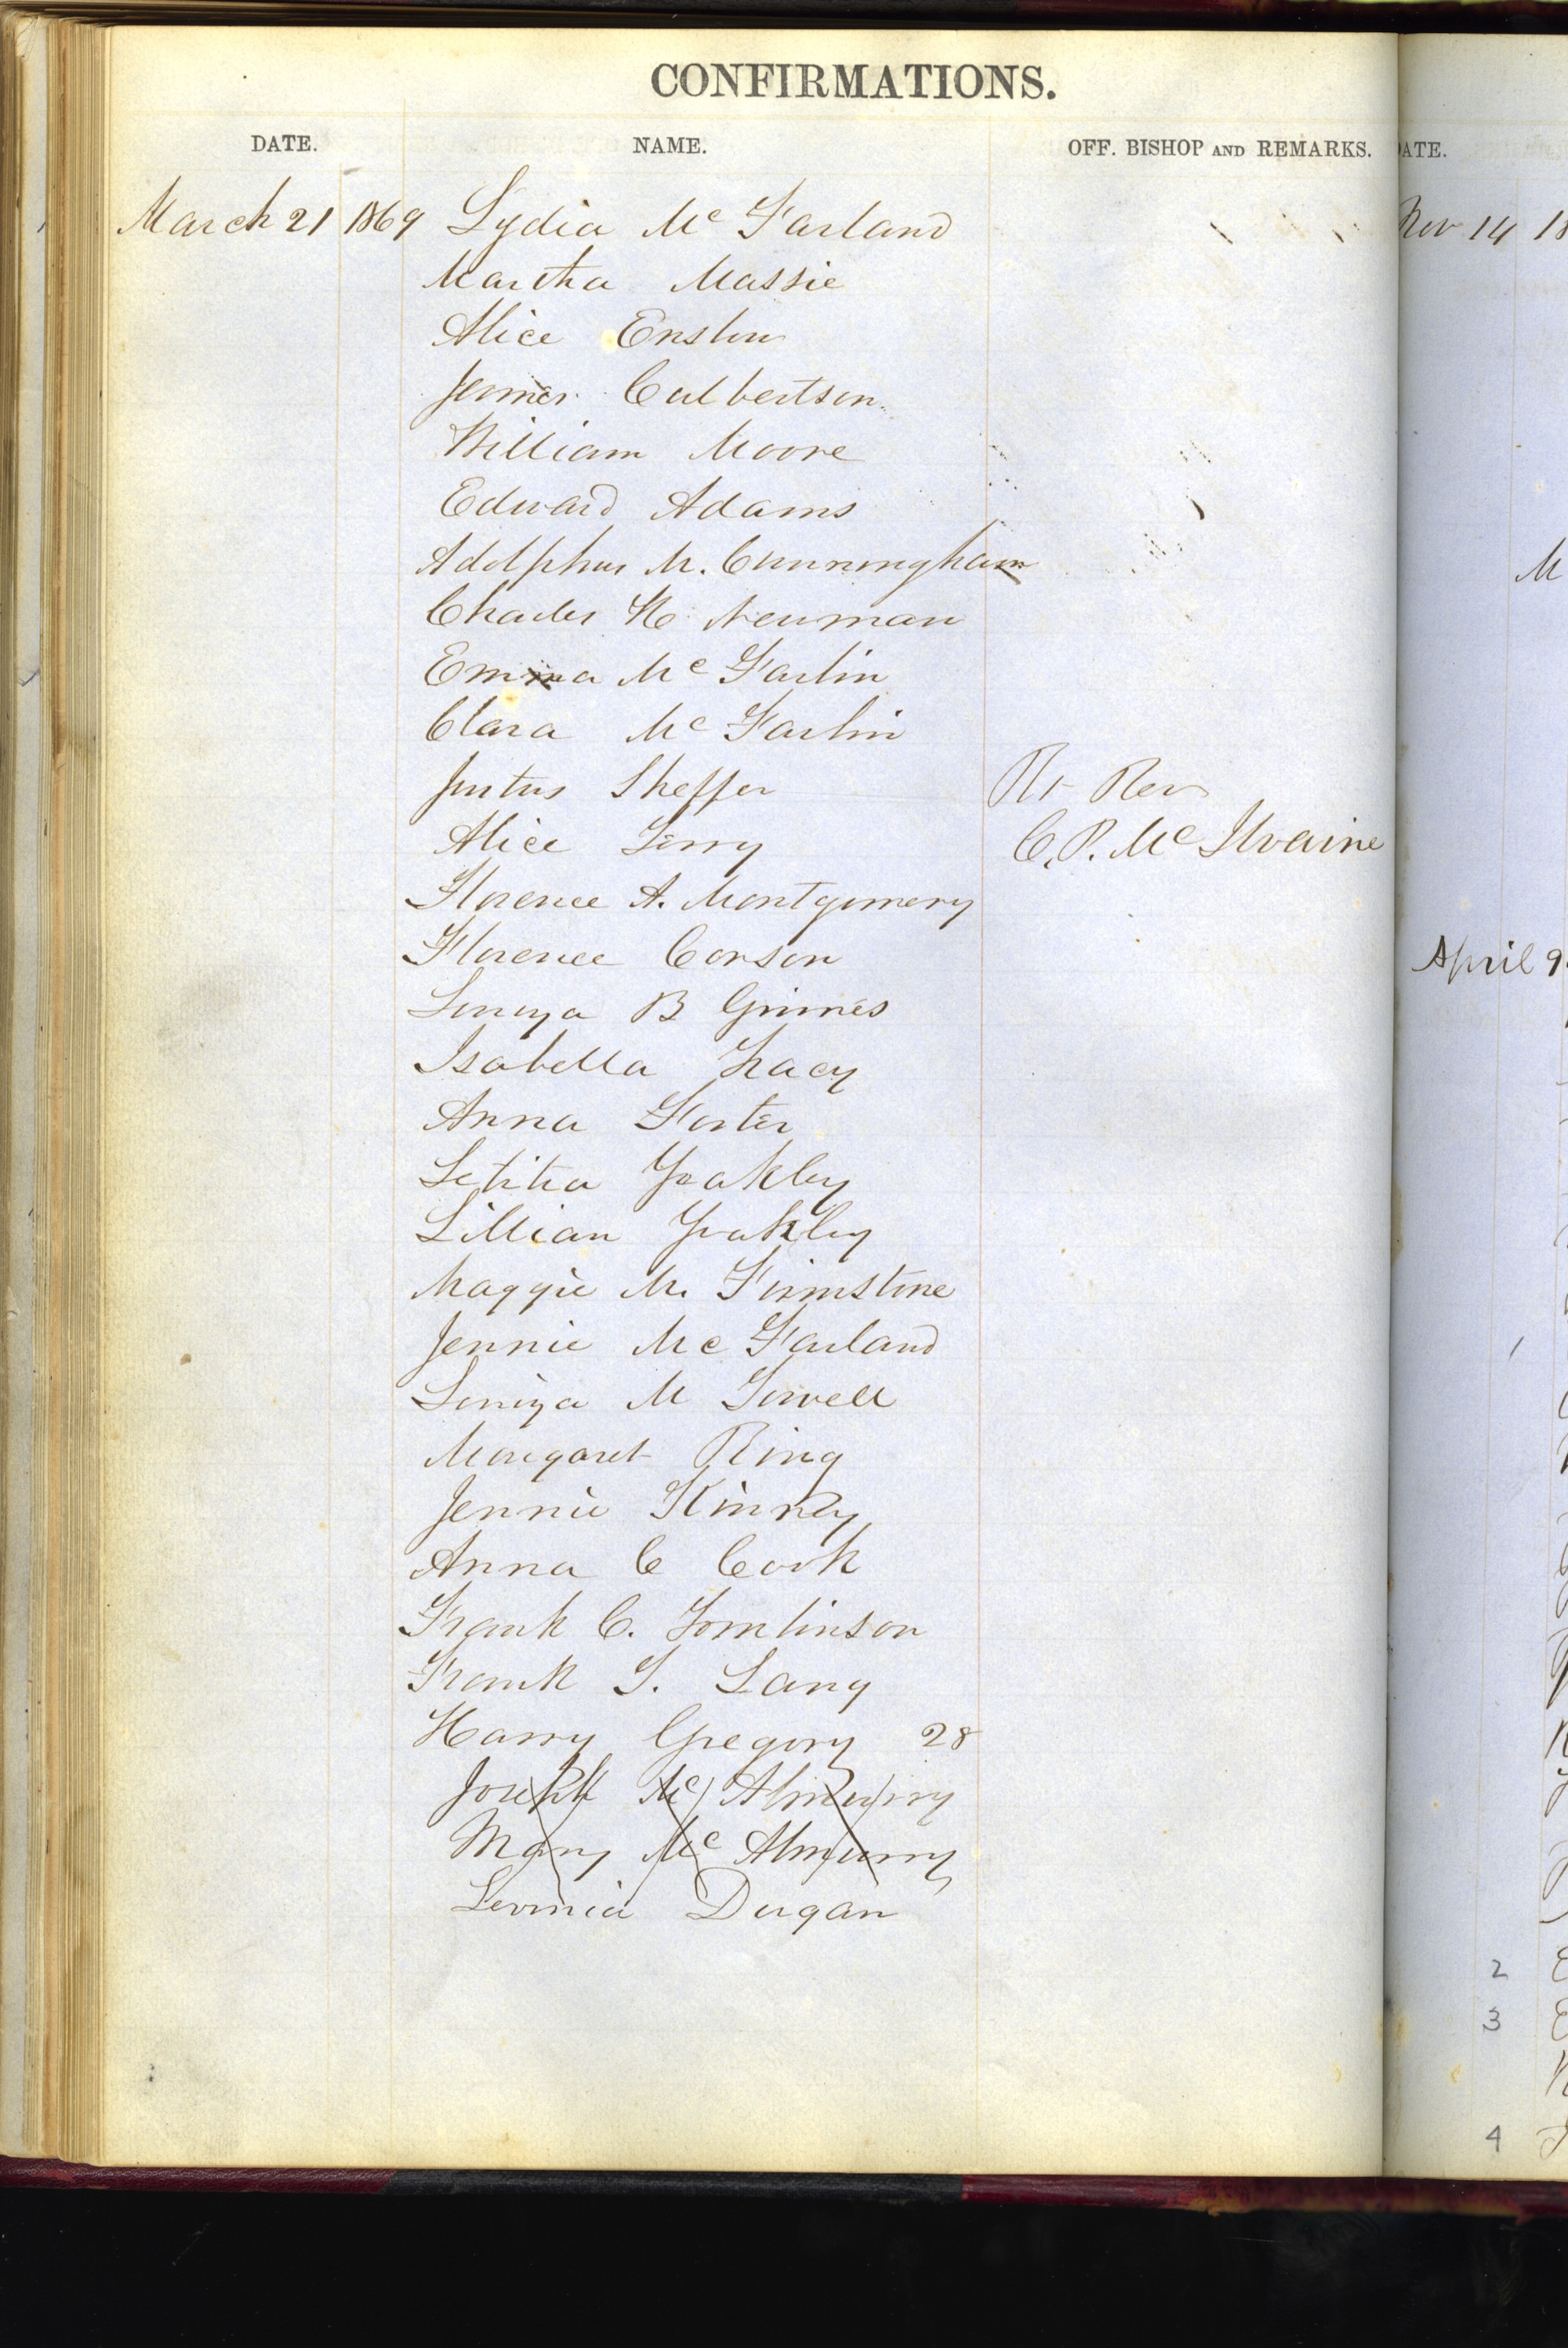 CONFIRMATIONS.
DATE. NAME. OFF. BISHOP AND REMARKS.
March 21 1869 Lydia Mc Farland
Martha Massie
Alice Enslow
Culbertson
William Moore
Edward Adams
Adolphus M. Cunningham
Charles H. Newman
Emma Mc Farlin
Clara Mc Farlin
Justus Sheffer
Rt Rev
Alice Terry
C. P. Mc Ilvaine
Florence A. Montgomery
Florence Corson
B Grimes
Isabella Tracy
Anna Foster
Letitia Yoakley
Lillian Yoakley
Maggie M. Firmstone
Jennie Mc Farland
M Towell
Margaret Ring
Jennie Kinney
Anna C Cook
Frank C. Tomlinson
Frank T. Lang
Harry Gregory 28
Joseph Mc Almurry
Mary Mc Almurry
Dugan
DATE.
Nov 14 18
M
April 9
2
3
4